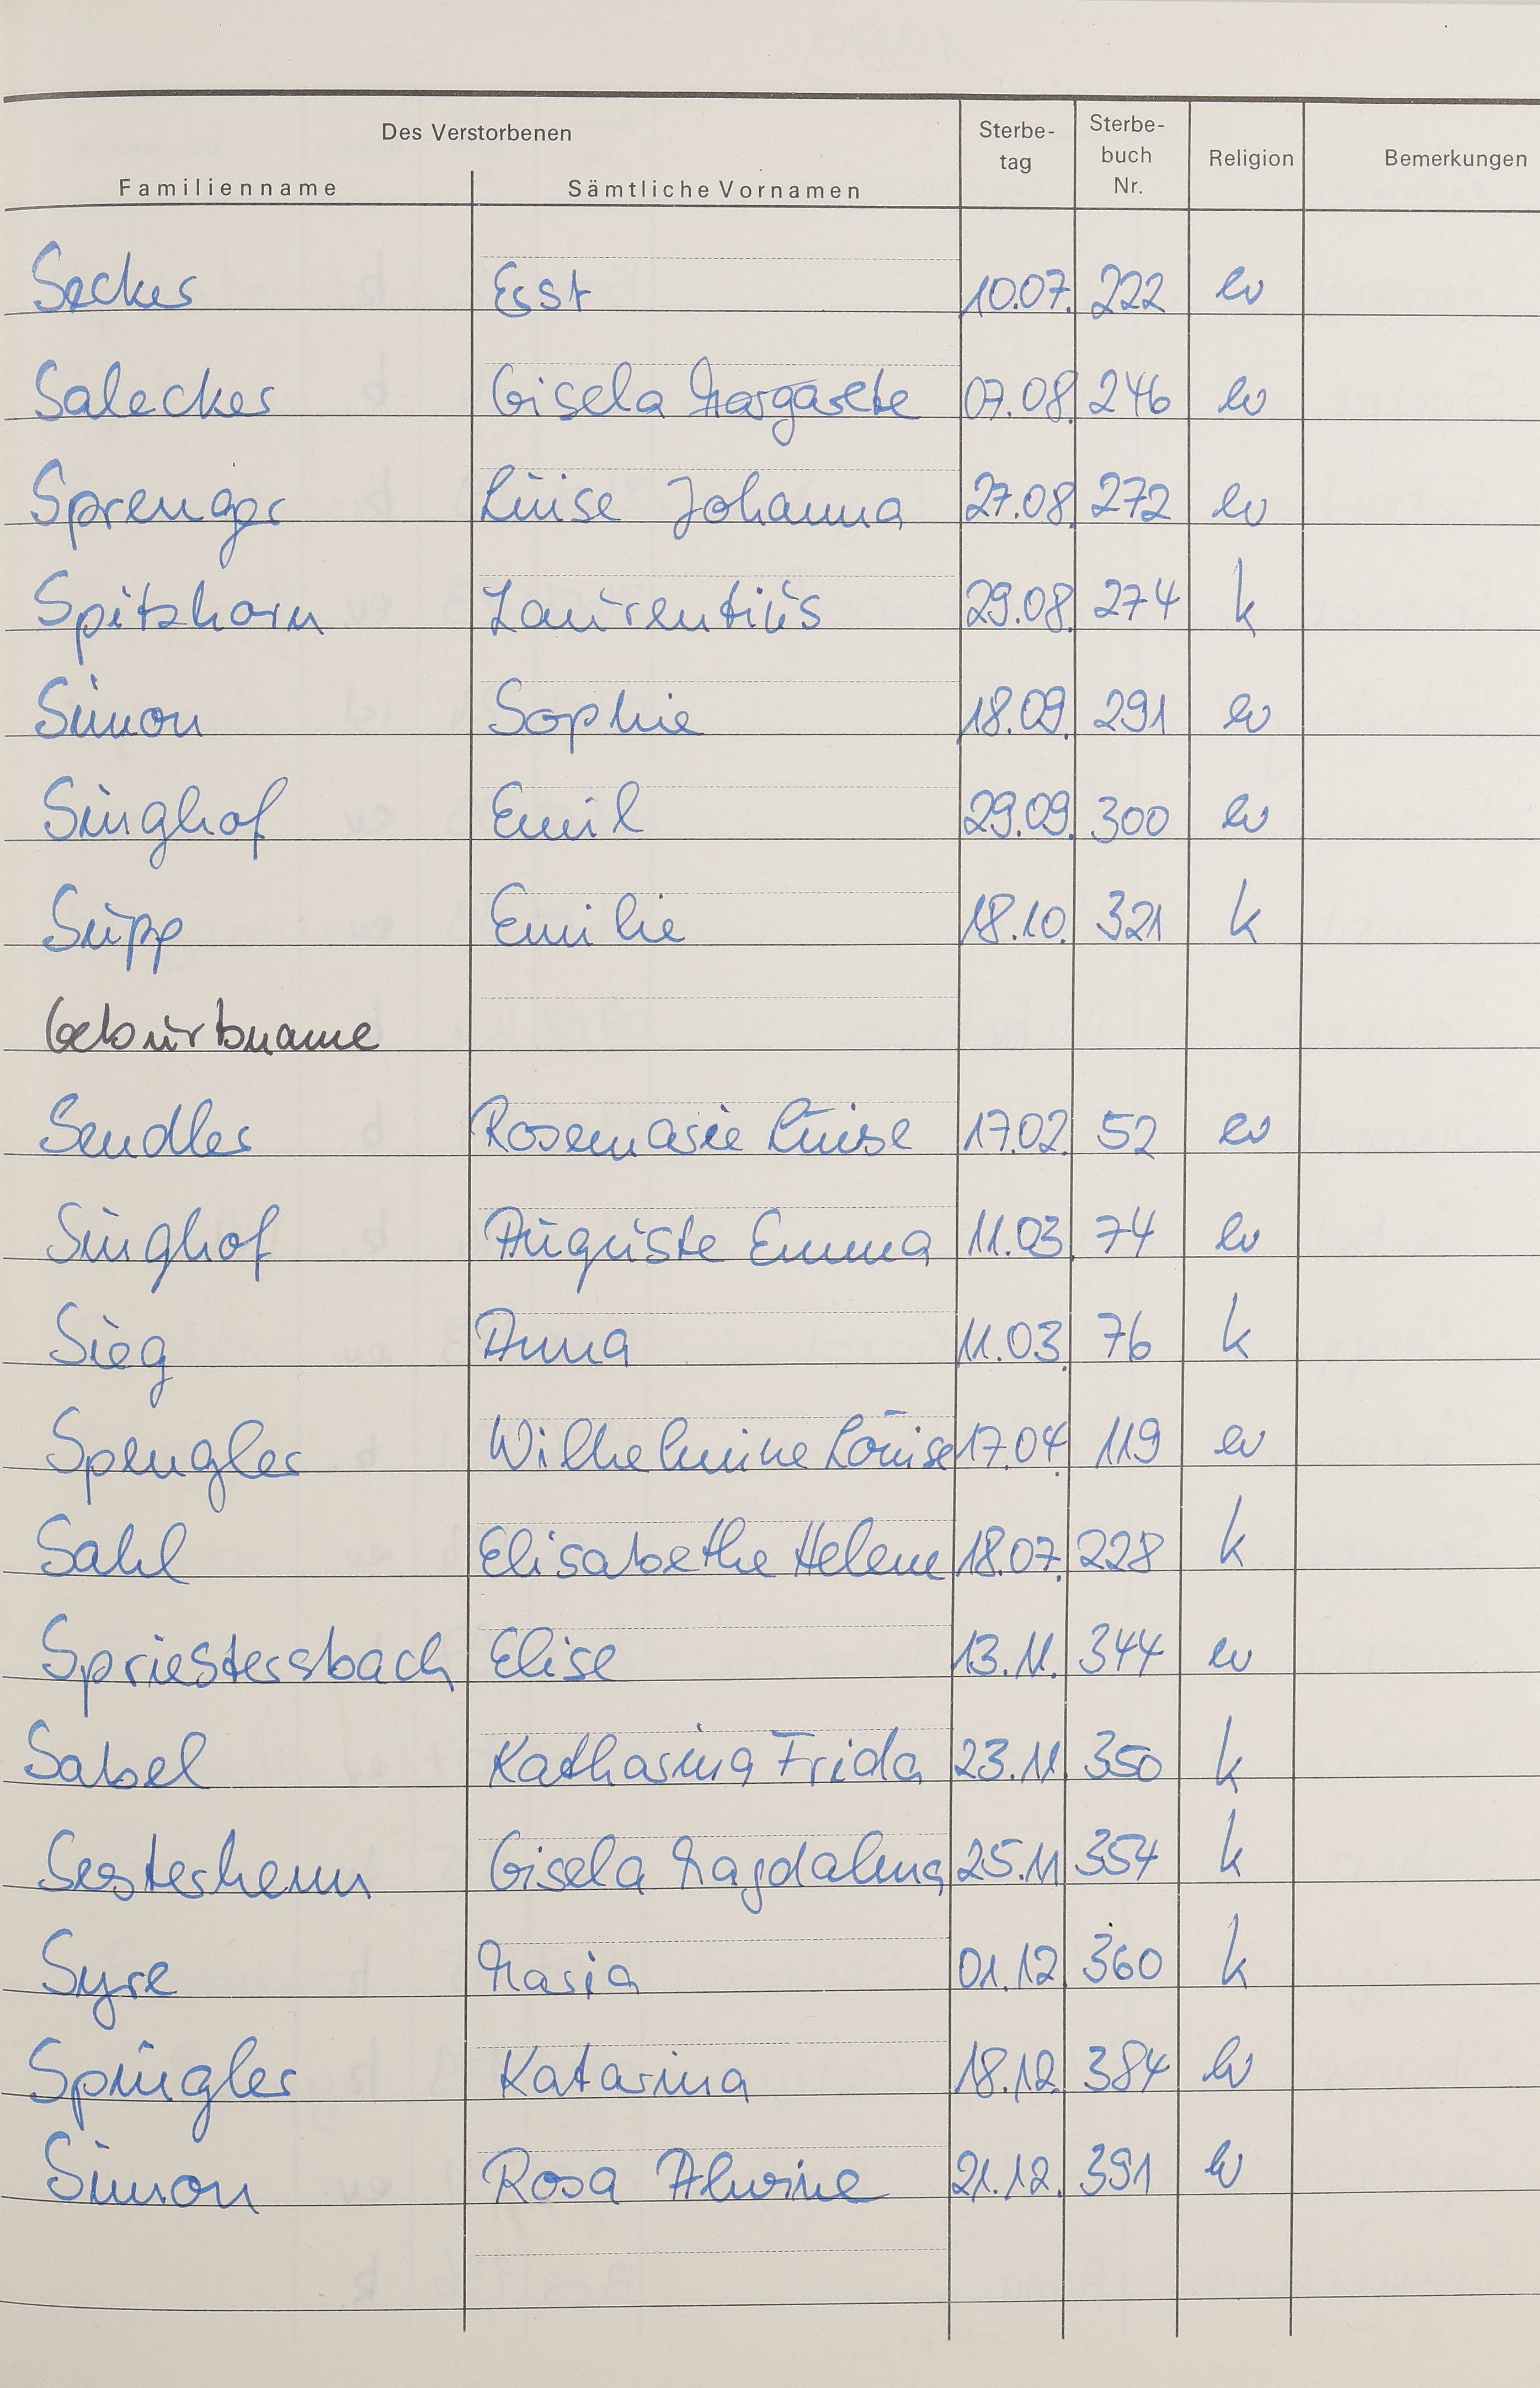 Des Verstorbenen
Familienname Sämtliche Vornamen Sterbe-tag Sterbe-buch Nr. Religion Bemerkungen
Secker 10.07. 222 ev
Salecker Gisela Margarete 07.08. 246 ev
Sprenger Luise Johanna 27.08. 272 ev
Spitzhorn Laurentius 29.08. 274 k
Simon Sophie 18.09. 291 ev
Singhof Emil 29.09. 300 ev
Supp Emilie 18.10. 321 k
Geburtsname
Sendler Rosemarie Luise 17.02. 52 ev
Singhof Auguste Emma 11.03. 74 ev
Sieg Anna 11.03. 76 k
Spengler Wilhelmine Louise 17.04. 119 ev
Sahl Elisabethe Helene 18.07. 228 k
Spriestersbach Elise 13.11. 344 ev
Sabel Katharina Frida 23.11. 350 k
Sesterhenn Gisela Magdalena 25.11 354 k
Syre Maria 01.12. 360 k
Katarina 18.12. 384 ev
Simon Rosa Alwine 21.12. 391 ev